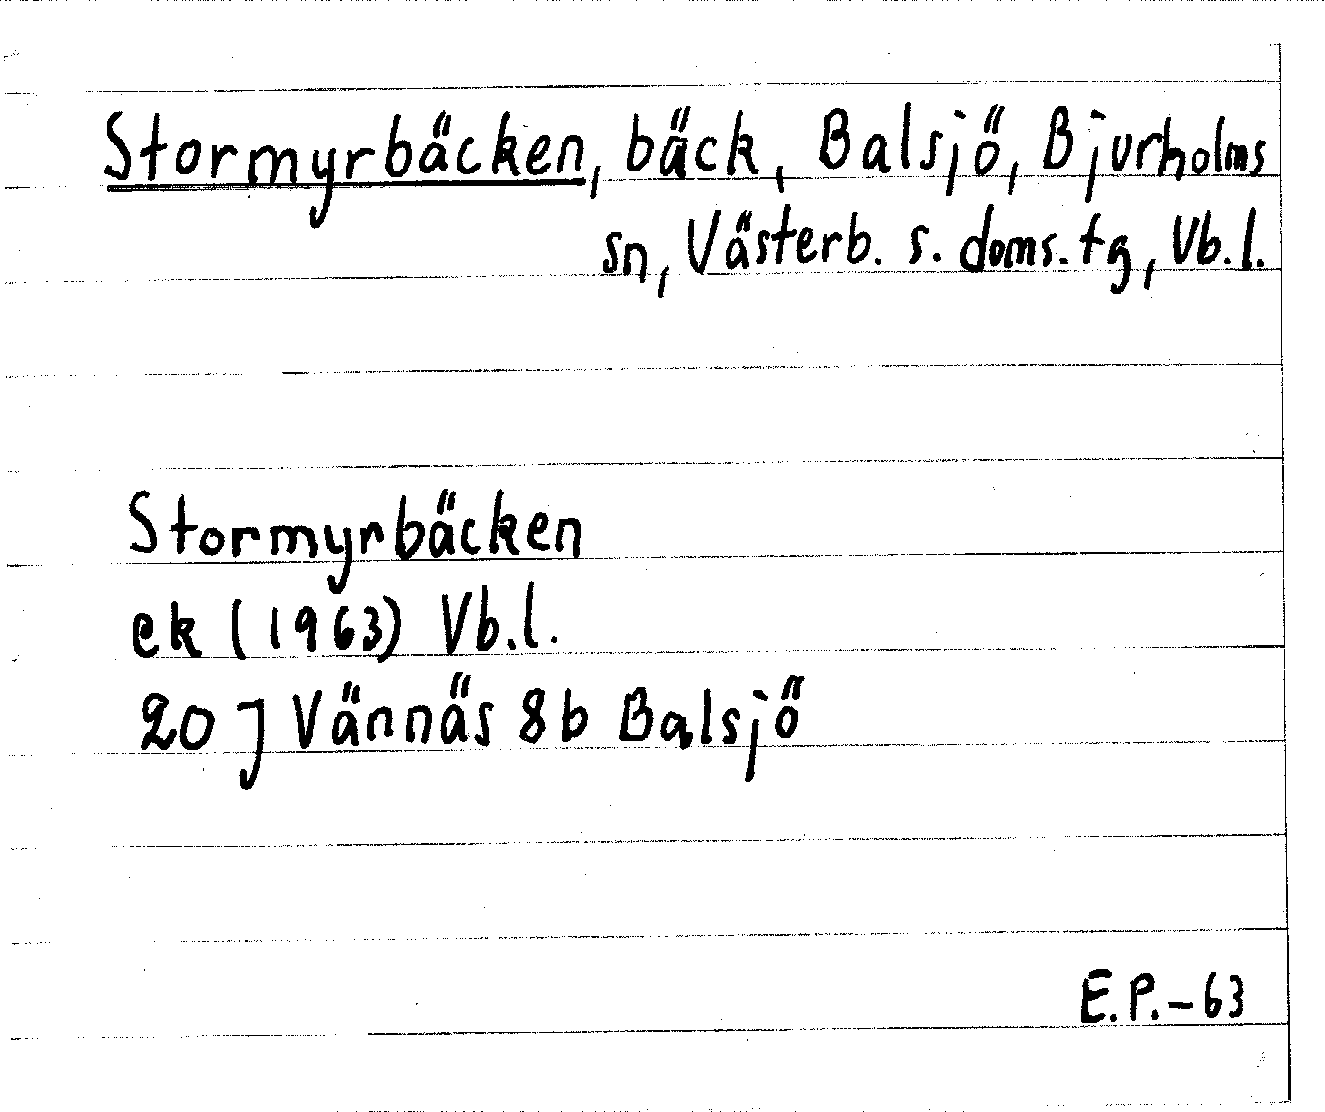 Stormyrbäcken, bäck, Balsjö, Bjurholms
sn, Västerb. s. doms. tg, Vb. l.
Stormyrbäcken
ek (1963) Vb. l.
20 J Vännäs 8b Balsjö
E.P.-63